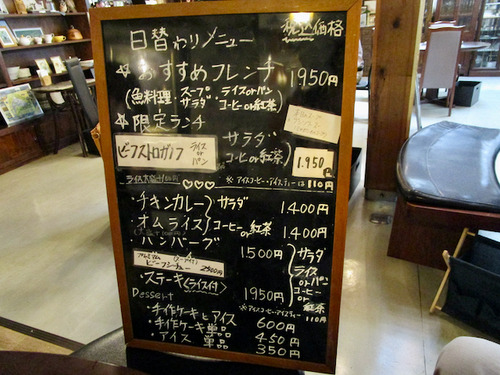 日替わりメニュー 税込価格
おすすめフレンチ 1950円
(魚料理・スープ ライスorパン
サラダ コーヒーor紅茶)
限定ランチ
ビーフストロガノフ ライスorパン サラダ
コーヒーor紅茶) 1,950円
♡♡♡ ※アイスコーヒー・アイスティーは110円
・チキンカレー サラダ 1400円
・オムライス コーヒーor紅茶 1400円
ハンバーグ 1500円 サラダ
ライス
orパン
コーヒー
or
紅茶
ビーフシチュー 2500円
・ステーキ〈ライス付〉 1950円
Dessert ※アイスコーヒー・アイスティー 110円
・手作ケーキとアイス 600円
・手作ケーキ 単品 450円
・アイス 単品 350円